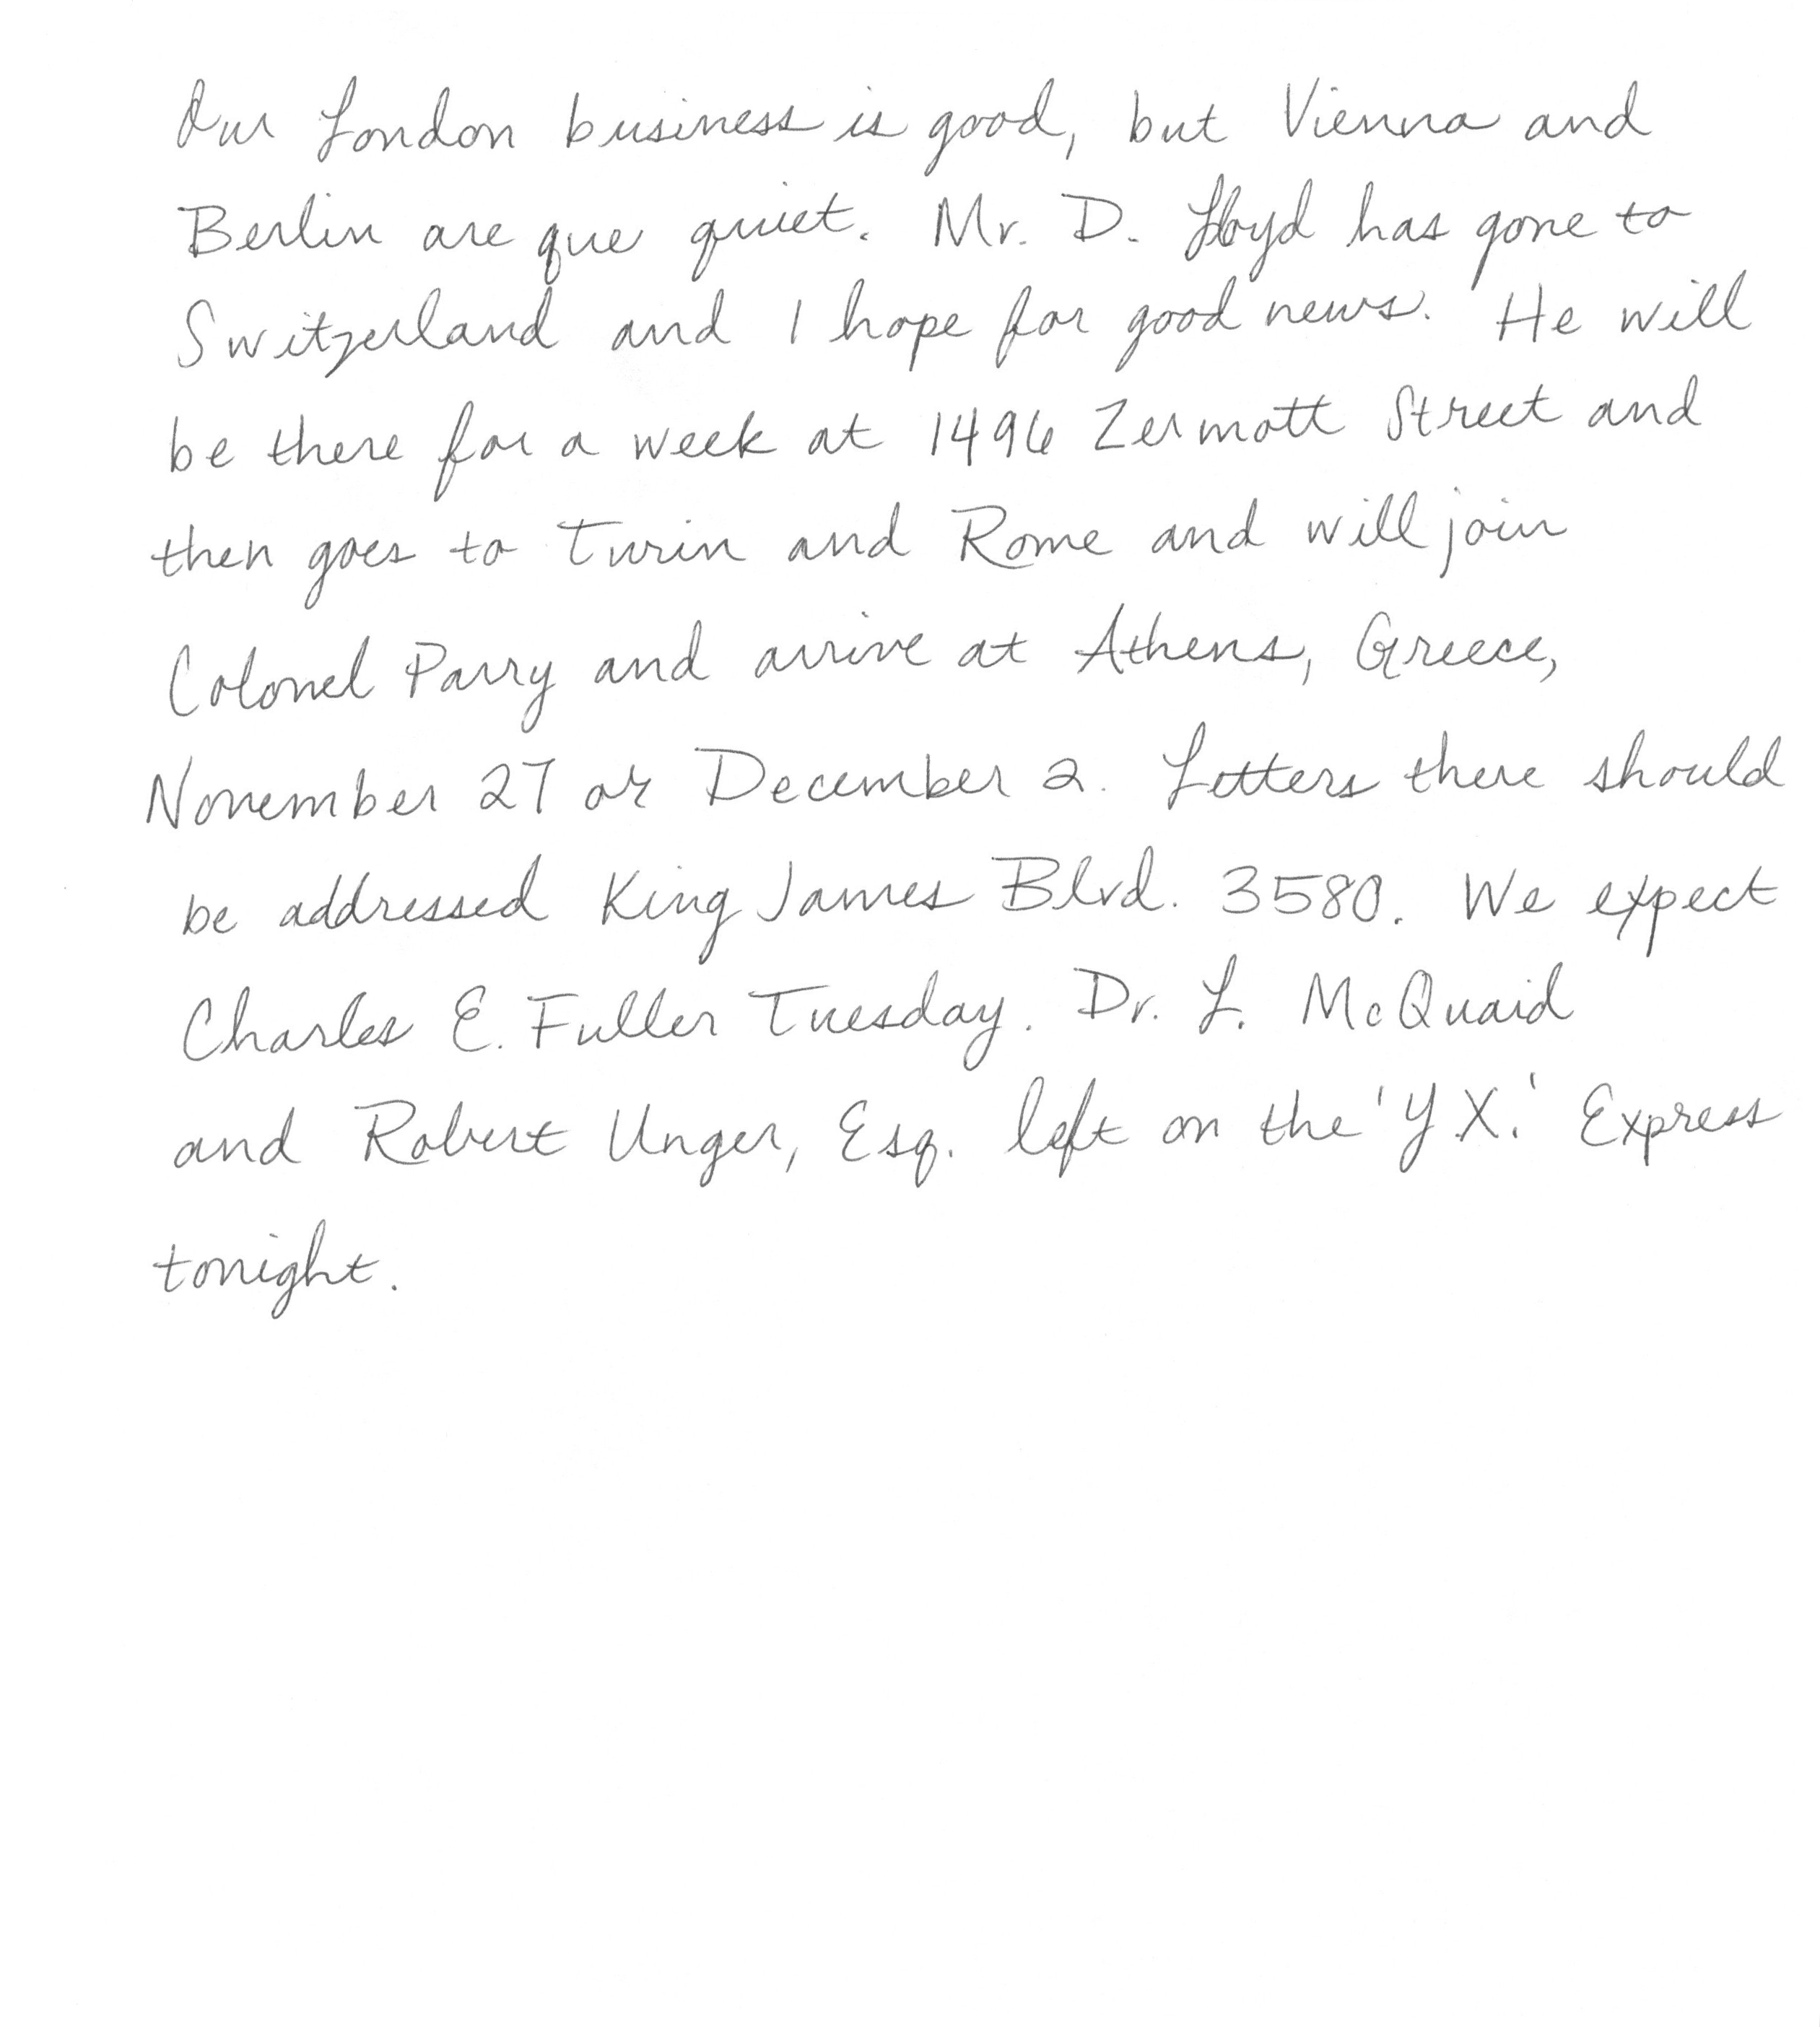 Our London business is good, but Vienna and
Berlin are que quiet. Mr. D. Lloyd has gone to
Switzerland and I hope for good news. He will
be there for a week at 1496 Zermott Street and
then goes to Turin and Rome and will join
Colonel Parry and arrive at Athens, Greece,
November 27 or December 2. Letters there should
be addressed King James Blvd. 3580. We expect
Charles E. Fuller Tuesday. Dr. L. McQuaid
and Robert Unger, Esq. left on the 'Y.X.' Express
tonight.